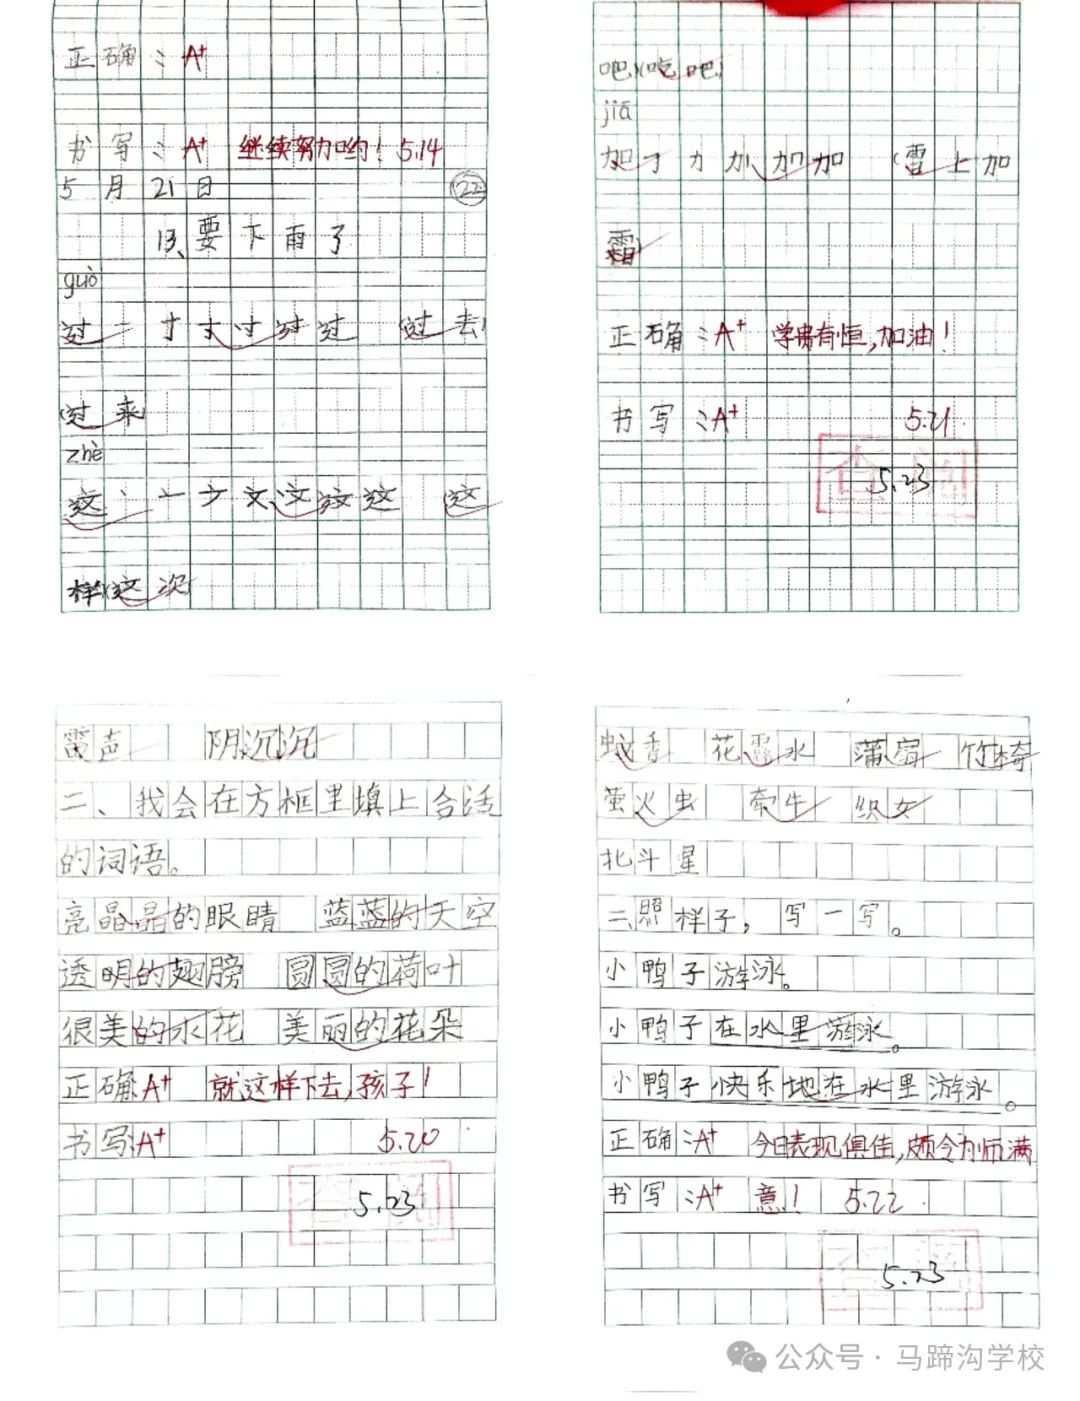 正确：A+
书写：A+ 继续努力哟！5.14
5月21日 22
13、要下雨了
guò
过一寸寸寸过过（过去）
（过来）
zhè
这丶亠ナ文这这这（这
样（这次
吧）（吃吧）
jiā
加丁力加加加（雪上加
霜）
正确：A+ 学贵有恒，加油！
书写：A+ 5.21
5.23
雷声 阴沉沉
二、我会在方框里填上合适
的词语。
亮晶晶的眼睛 蓝蓝的天空
透明的翅膀 圆圆的荷叶
很美的水花 美丽的花朵
正确:A+ 就这样下去，孩子！
书写:A+ 5.20
5.23
蚊香 花露水 蒲扇 竹椅
萤火虫 牵牛 织女
北斗星
二、照样子，写一写。
小鸭子游泳。
小鸭子在水里游泳。
小鸭子快乐地在水里游泳。
正确：A+ 今日表现俱佳，颇令为师满
书写：A+ 意！ 5.22
5.23
公众号·马蹄沟学校